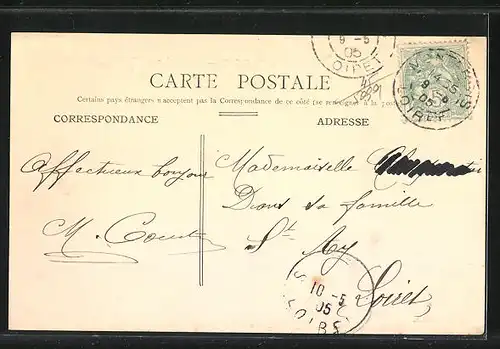 CARTE POSTALE
Certains pays étrangers n'acceptent pas la Correspondance de ce côté (se renseigner à la poste)
CORRESPONDANCE
ADRESSE
Affectueux bonjour
M.
Mademoiselle
Dans sa famille
St Ay
Loiret
9 -5
05
LOIRET
9 -5
05
LOIRET
10 -5
05
LOIRET